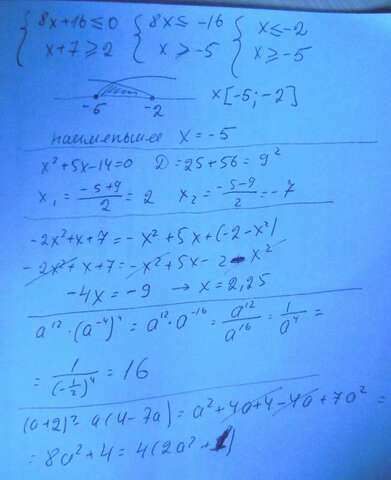 { 8x+16≤0 { 8x≤ -16 { x≤-2
{ x+7≥2 { x ≥ -5 { x≥-5
-5 -2 x[-5; -2]
наименьшее x = -5
x²+5x-14=0 D=25+56=9²
x₁ = (-5+9)/2 = 2 x₂ = (-5-9)/2 = -7
-2x²+x+7 = -x²+5x+(-2-x²)
-2x²+x+7 = -x²+5x-2-x²
-4x = -9 → x = 2,25
a¹²·(a⁻⁴)⁴ = a¹²·a⁻¹⁶ = a¹²/a¹⁶ = 1/a⁴ =
= 1/(-½)⁴ = 16
(a+2)² - a(4-7a) = a²+4a+4-4a+7a² =
= 8a²+4 = 4(2a²+1)